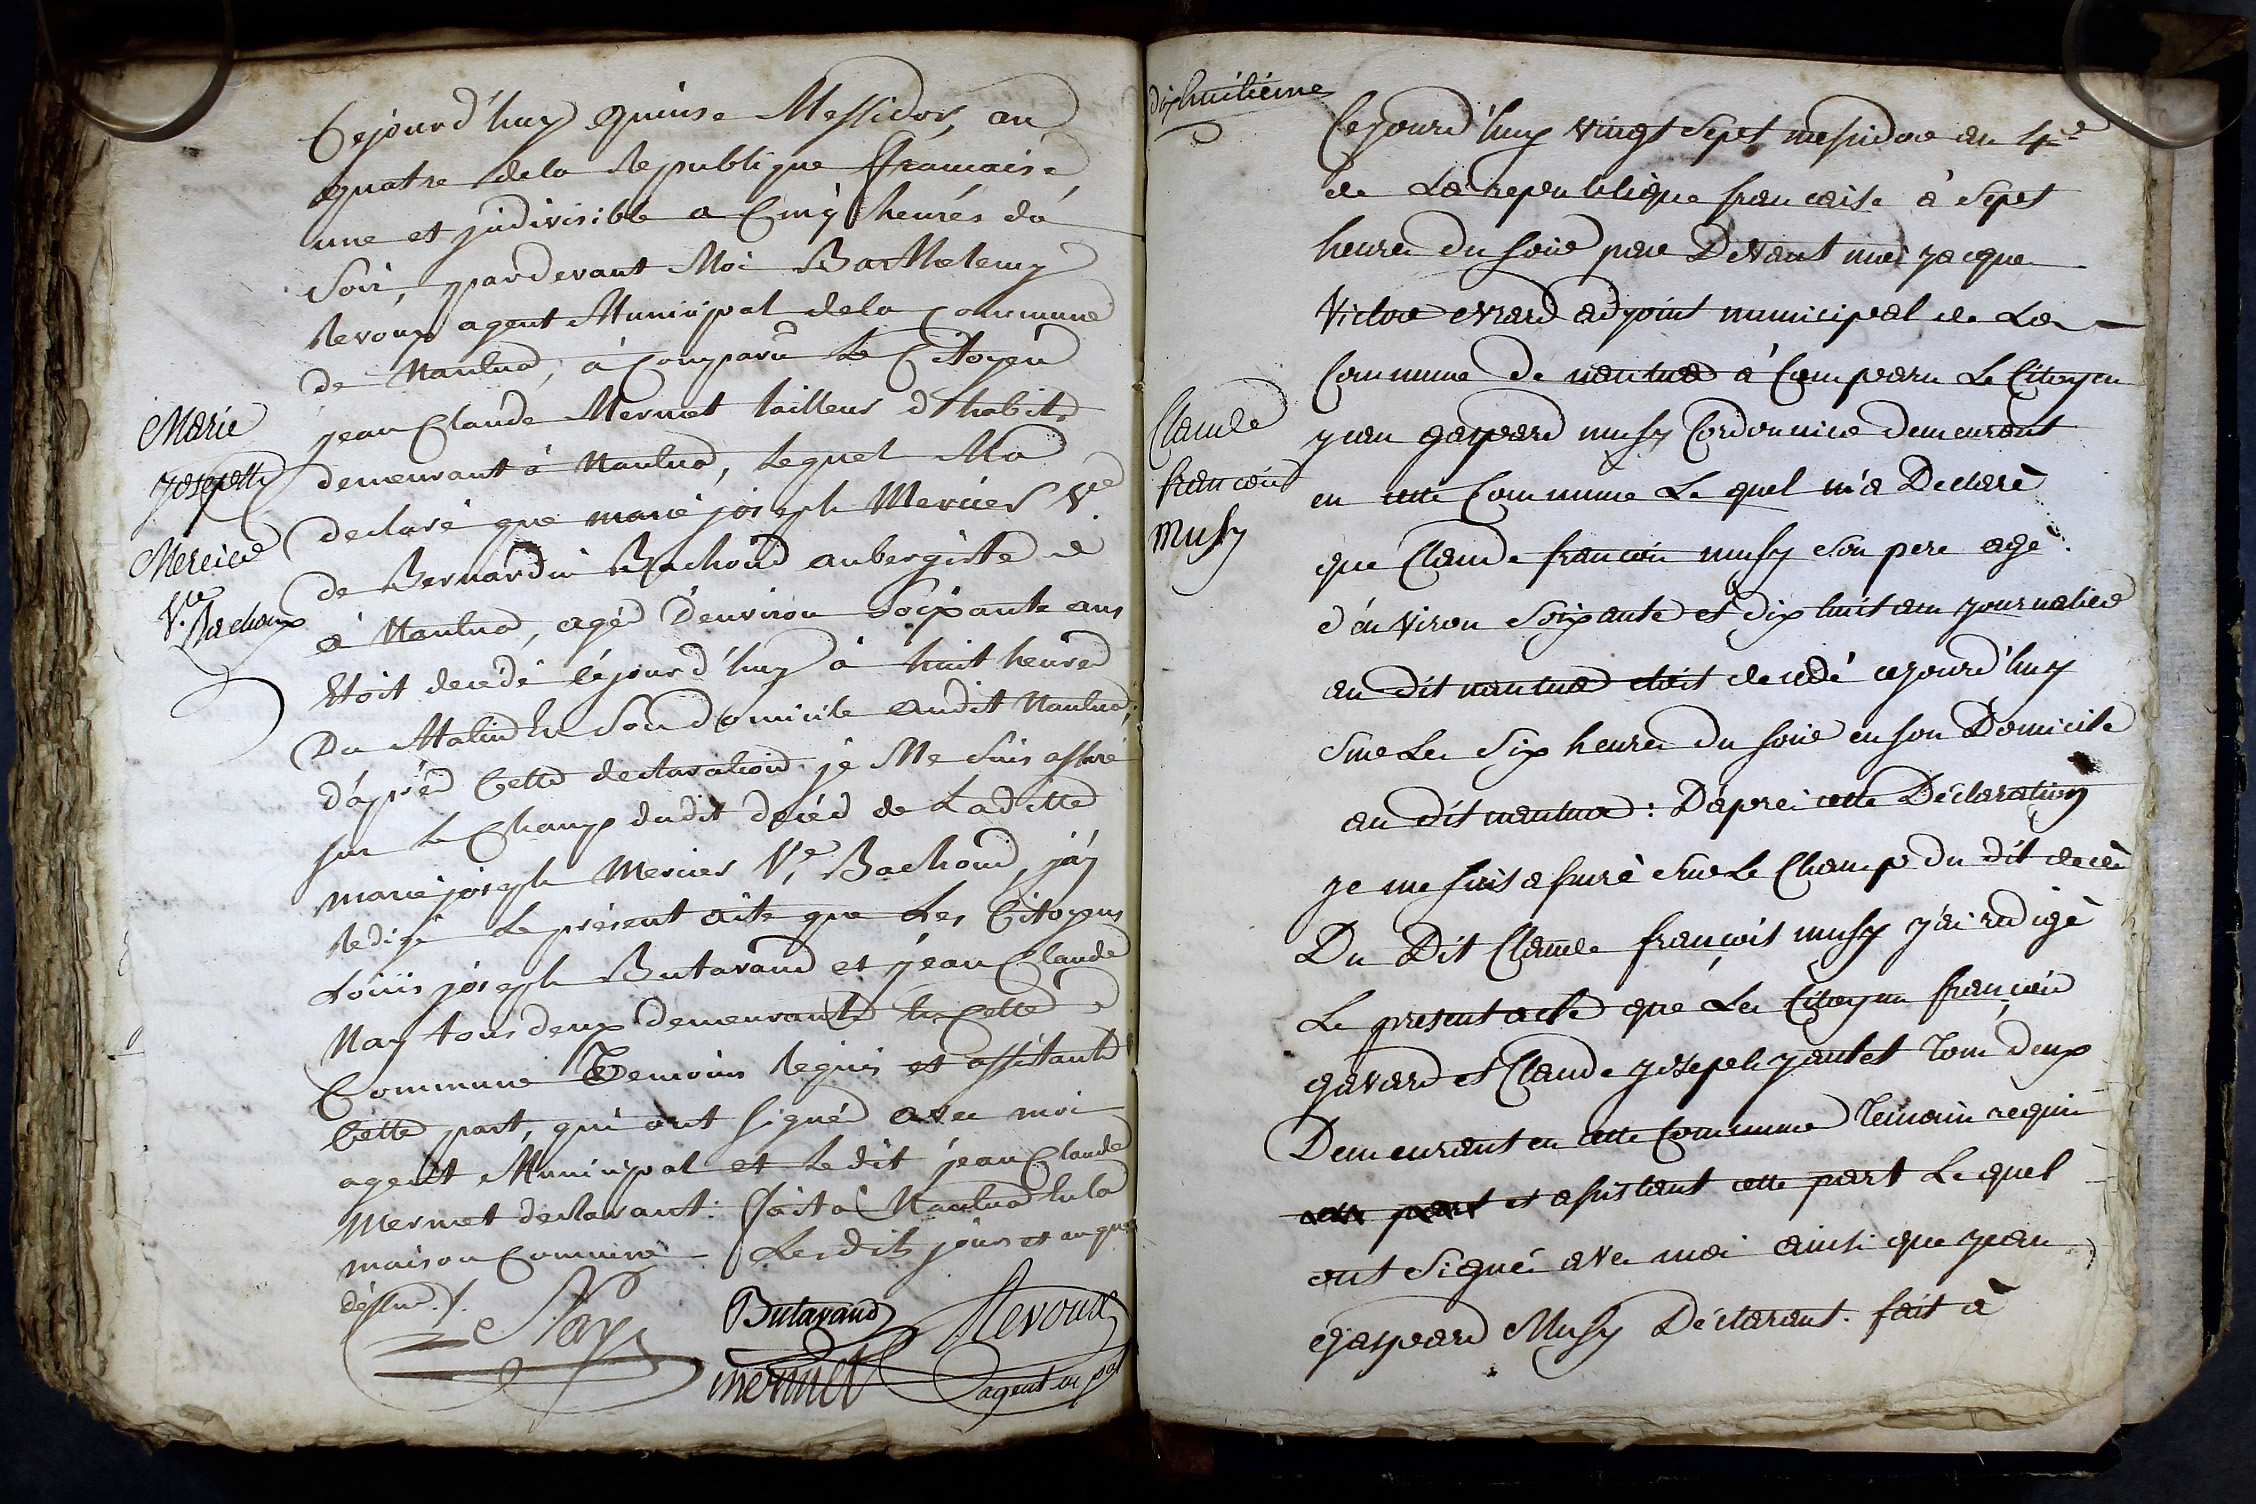 Cejourd'huy quinse Messidor, an
quatre de la Republique francaise
une et jndivisible a Cinq heures du
Soir, pardevant Moi Barthelemy
Revoux agent Municipal dela Commune
de Nantua, à Comparu Le Citoyen
jean Claude Mermet tailleur d'habits
demeurant à Nantua, Lequel M'a
declaré que marie joseph Mercier V.e
de Bernardin Bachoud aubergiste
à Nantua, agée d'environ Soixante ans
Etoit decédé Cejourd'huy à huit heures
Du Matin En Son domicile audit Nantua;
d'après Cette declaration je Me Suis assuré
Sur Le Champ dudit décéd de Laditte
marie joseph Mercier V.e Bachoud, j'ay
Redigé Le présent acte que Les Citoyens
Loüis joseph Butavand et jean Claude
Nay tous deux demeurants En Cette
Commune Temoins Requis et assistants
Cette part, qui ont Signés avec moi
agent Municipal et Le dit jean Claude
Mermet declarant: fait à Nantua En la
maison Commune Lesdits jour et an que
dessus ./.
Nay
Butavand
Revoux
mermet
agent m.pal
Marie
Josepth
Mercier
V.e Bachoux
dixhuitieme
Cejourd'huy vingt Sept mesidor an 4.e
de La republique francaise à Sept
heures du Soir pare Devant moi jacque
Victor evrard adjoint municipal de La
Commune de nantua à Comparu Le Citoyen
jean gaspard musy Cordonnier demeurant
en cette Commune Le quel m'a Declarè
que Claude francois musy Son pere agè
d'environ Soixante et dix huit ans journalier
au dit nantua étoit decedé cejourd'huy
Sur Les Six heures du Soir en Son Domicile
au dit nantua : D'aprei cette Déclaration
je me Suis asurè Sur Le Champ du dit decès
Du Dit Claude françois musy j'ai redigè
Le present acte que Les Citoyen francois
gavard et Claude josepeh jantet Tous deux
Demeurant en cette Commune Temoin requis
et asistant cette part Le quel
ont Signés avec moi ainsi que jean
gaspard Musy Déclarant. fait à
Claude
francois
Musy